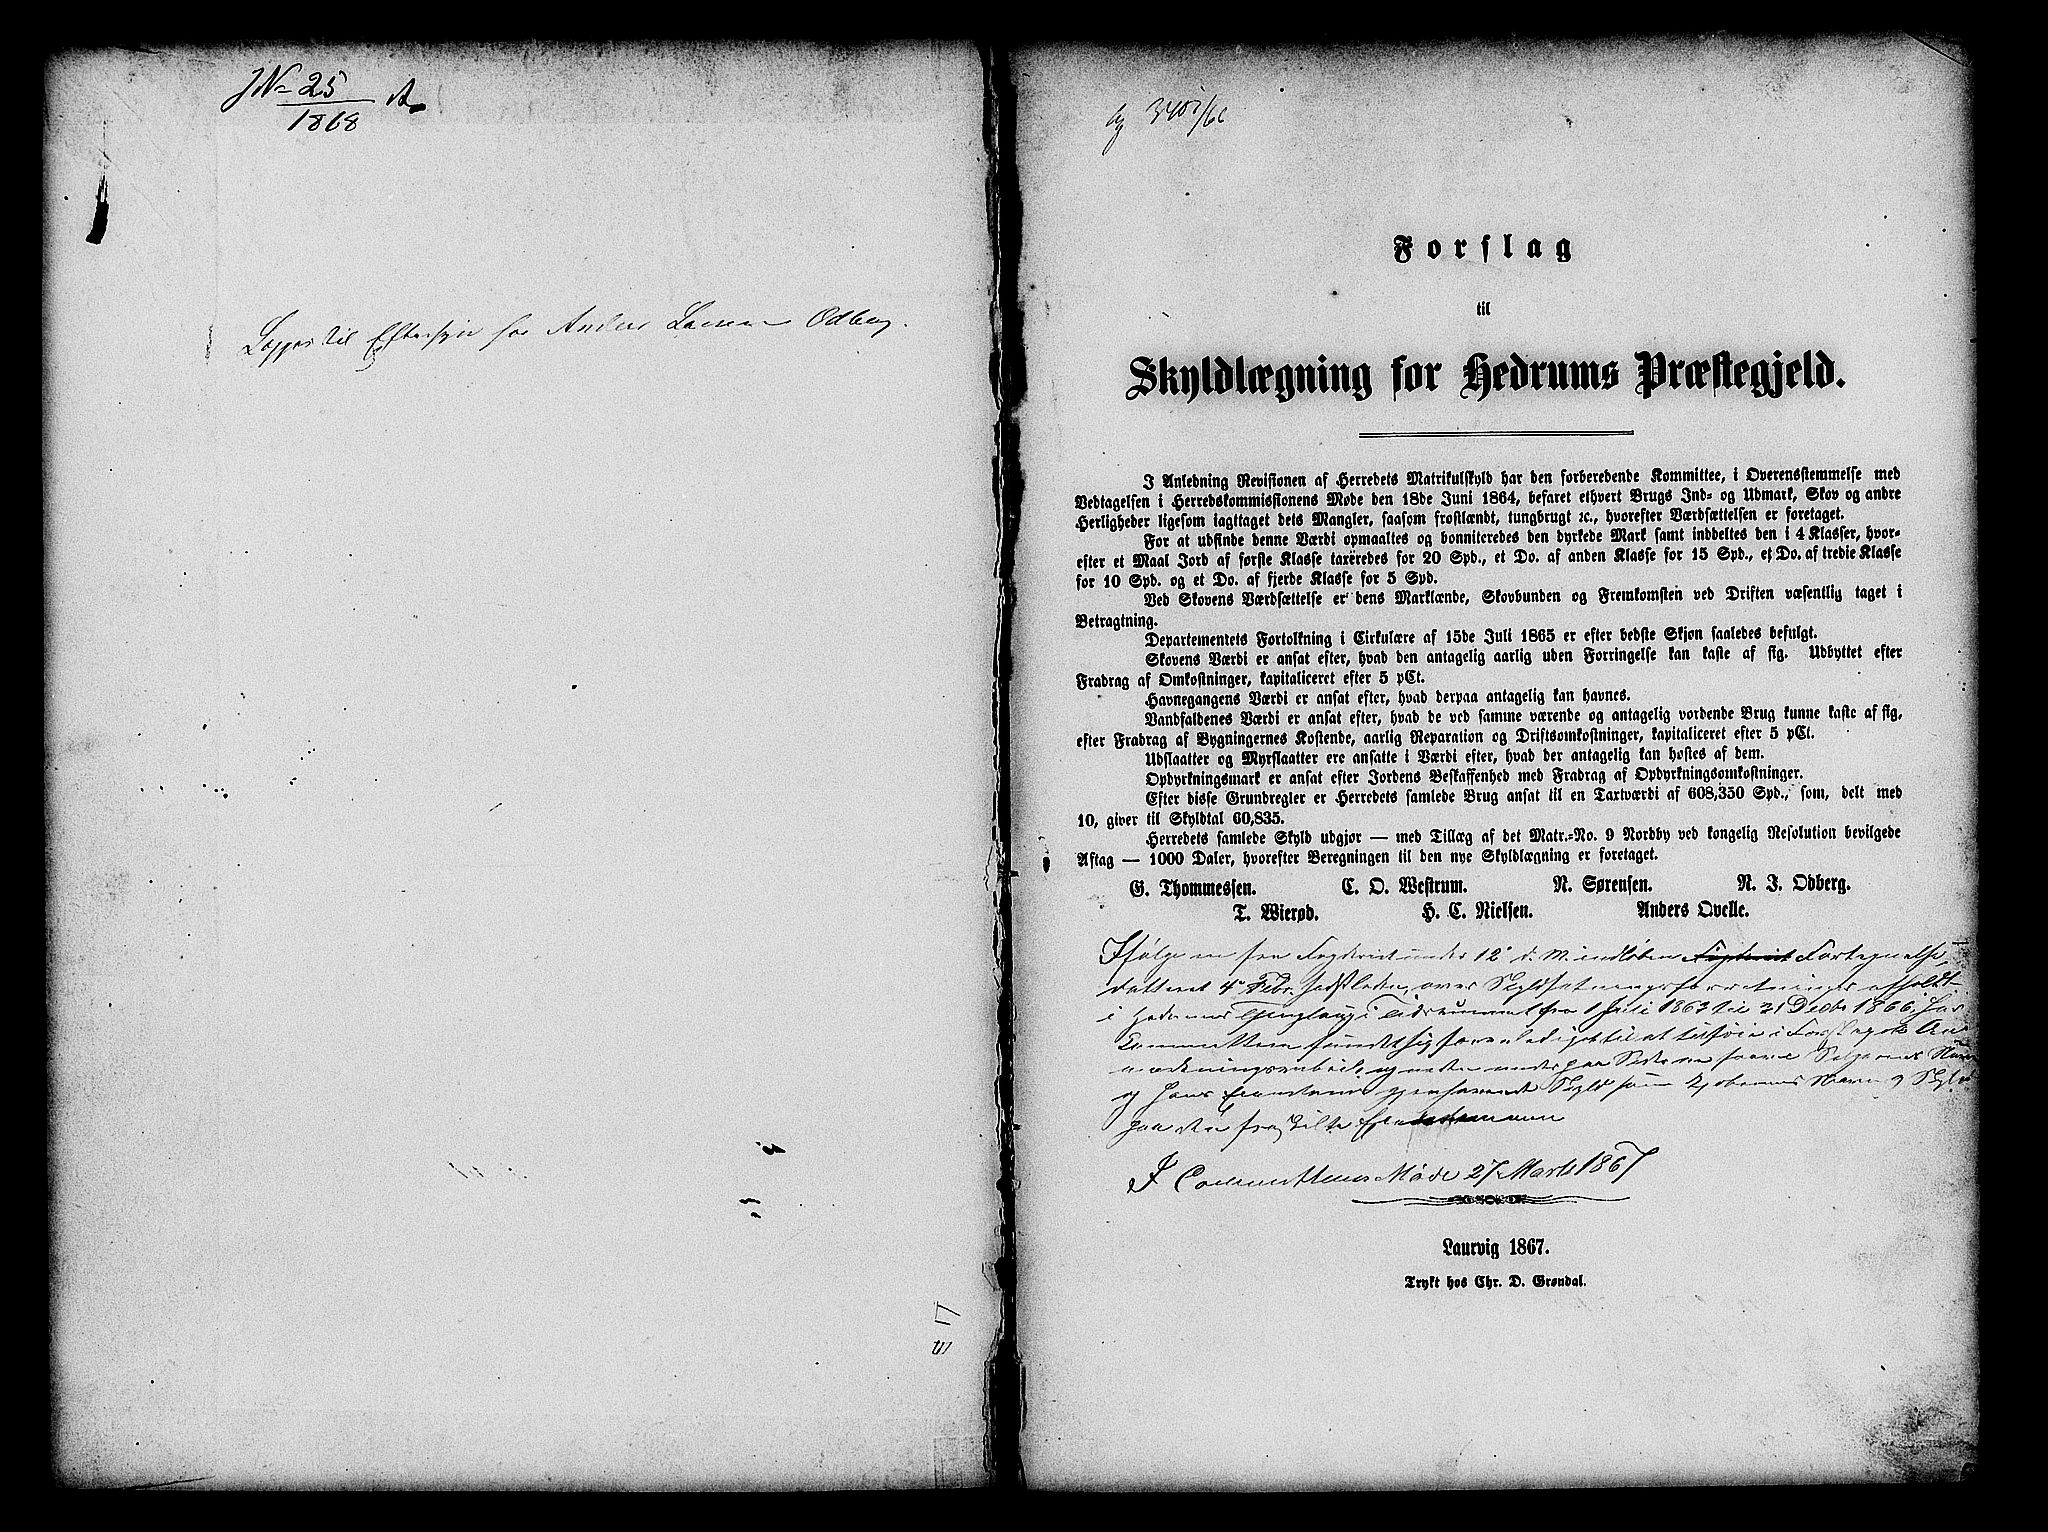 JN= 25
1868 A
Lægges til Eftersyn for Anders Odberg.
Forslag
til
Skyldlægning for Hedrums Præstegjeld.
I Anledning Revisionen af Herredets Matrikulskyld har den forberedende Kommittee, i Overensstemmelse med
Vedtagelsen i Herredskommissionens Møde den 18de Juni 1864, befaret ethvert Brugs Ind- og Udmark, Skov og andre
Herligheder ligesom iagttaget dets Mangler, saasom frostlændt, tungbrugt ꝛc., hvorefter Værdsættelsen er foretaget.
For at udfinde denne Værdi opmaaltes og bonniteredes den dyrkede Mark samt inddeltes den i 4 Klasser, hvor-
efter et Maal Jord af første Klasse taxeredes for 20 Spd., et Do. af anden Klasse for 15 Spd., et Do. af tredie Klasse
for 10 Spd. og et Do. af fjerde Klasse for 5 Spd.
Ved Skovens Værdsættelse er dens Marklænde, Skovbunden og Fremkomsten ved Driften væsentlig taget i
Betragtning.
Departementets Fortolkning i Cirkulære af 15de Juli 1865 er efter bedste Skjøn saaledes befulgt.
Skovens Værdi er ansat efter, hvad den antagelig aarlig uden Forringelse kan kaste af sig. Udbyttet efter
Fradrag af Omkostninger, kapitaliceret efter 5 pCt.
Havnegangens Værdi er ansat efter, hvad derpaa antagelig kan havnes.
Vandfaldenes Værdi er ansat efter, hvad de ved samme værende og antagelig vordende Brug kunne kaste af sig,
efter Fradrag af Bygningernes Kostende, aarlig Reparation og Driftsomkostninger, kapitaliceret efter 5 pCt.
Udslaatter og Myrslaatter ere ansatte i Værdi efter, hvad der antagelig kan høstes af dem.
Opdyrkningsmark er ansat efter Jordens Beskaffenhed med Fradrag af Opdyrkningsomkostninger.
Efter disse Grundregler er Herredets samlede Brug ansat til en Taxtværdi af 608,350 Spd., som, delt med
10, giver til Skyldtal 60,835.
Herredets samlede Skyld udgjør — med Tillæg af det Matr.-No. 9 Nordby ved kongelig Resolution bevilgede
Aftag — 1000 Daler, hvorefter Beregningen til den nye Skyldlægning er foretaget.
G. Thommessen. C. O. Westrum. N. Sørensen. N. J. Odberg.
T. Wierød. H. C. Nielsen. Anders Qvelle.
Ifølge en fra Fogderiet under 12' d. M. indløben Fogderiet Fortegnelse,
datteret 4' Febr. over Skyldsætningsforretninger afholdt
i Hedrums Thinglaug i Tidsrummet fra 1 Juli 1863 til 31 Decbr 1866, har
Committeen fundet sig foranlediget til at tilføie i Forslagets An-
mærkningsrubrik, og nedenunder paa Siderne saavel Sælgerens Navn
og hans Eiendoms gjenværende Skyld som Kjøberens Navn og Skyld
paa den fraskilte
I Committeens Møde 27 Marts 1867
Laurvig 1867.
Trykt hos Chr. D. Grøndal.